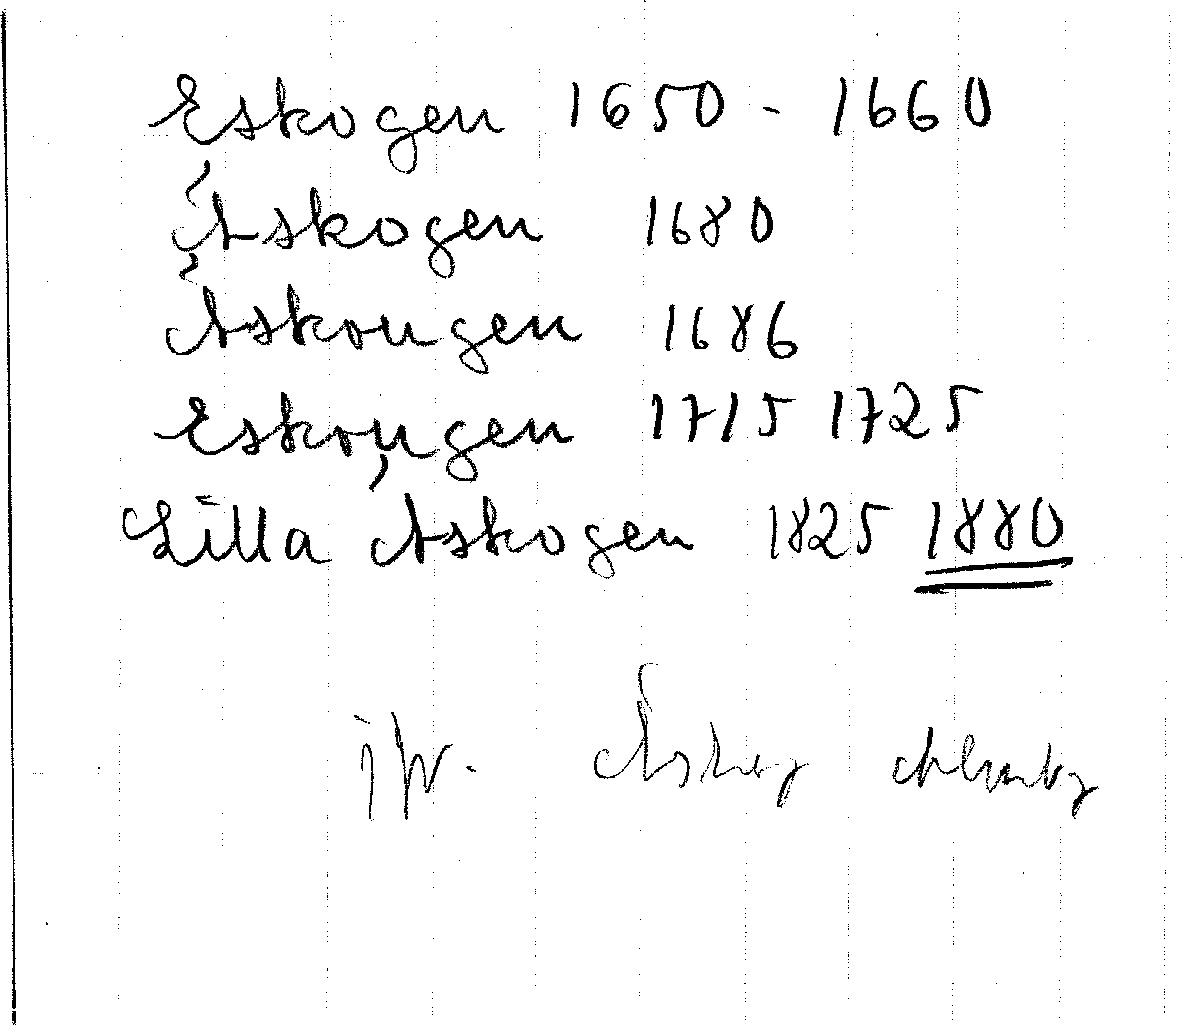 Eskogen 1650 - 1660
Áskogen 1680
Áskougen 1686
Eskougen 1715 1725
Lilla Áskogen 1825 1880
jfr.